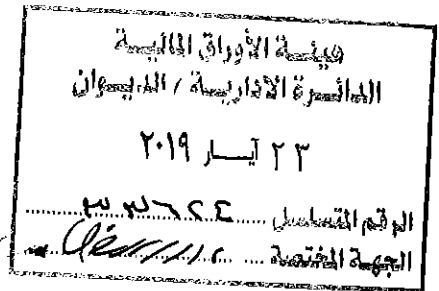 هيئة الأوراق المالية
الدائرة الادارية / الديوان
٢٣ آيار ٢٠١٩
الرقم المتسلسل
الجهة المختصة